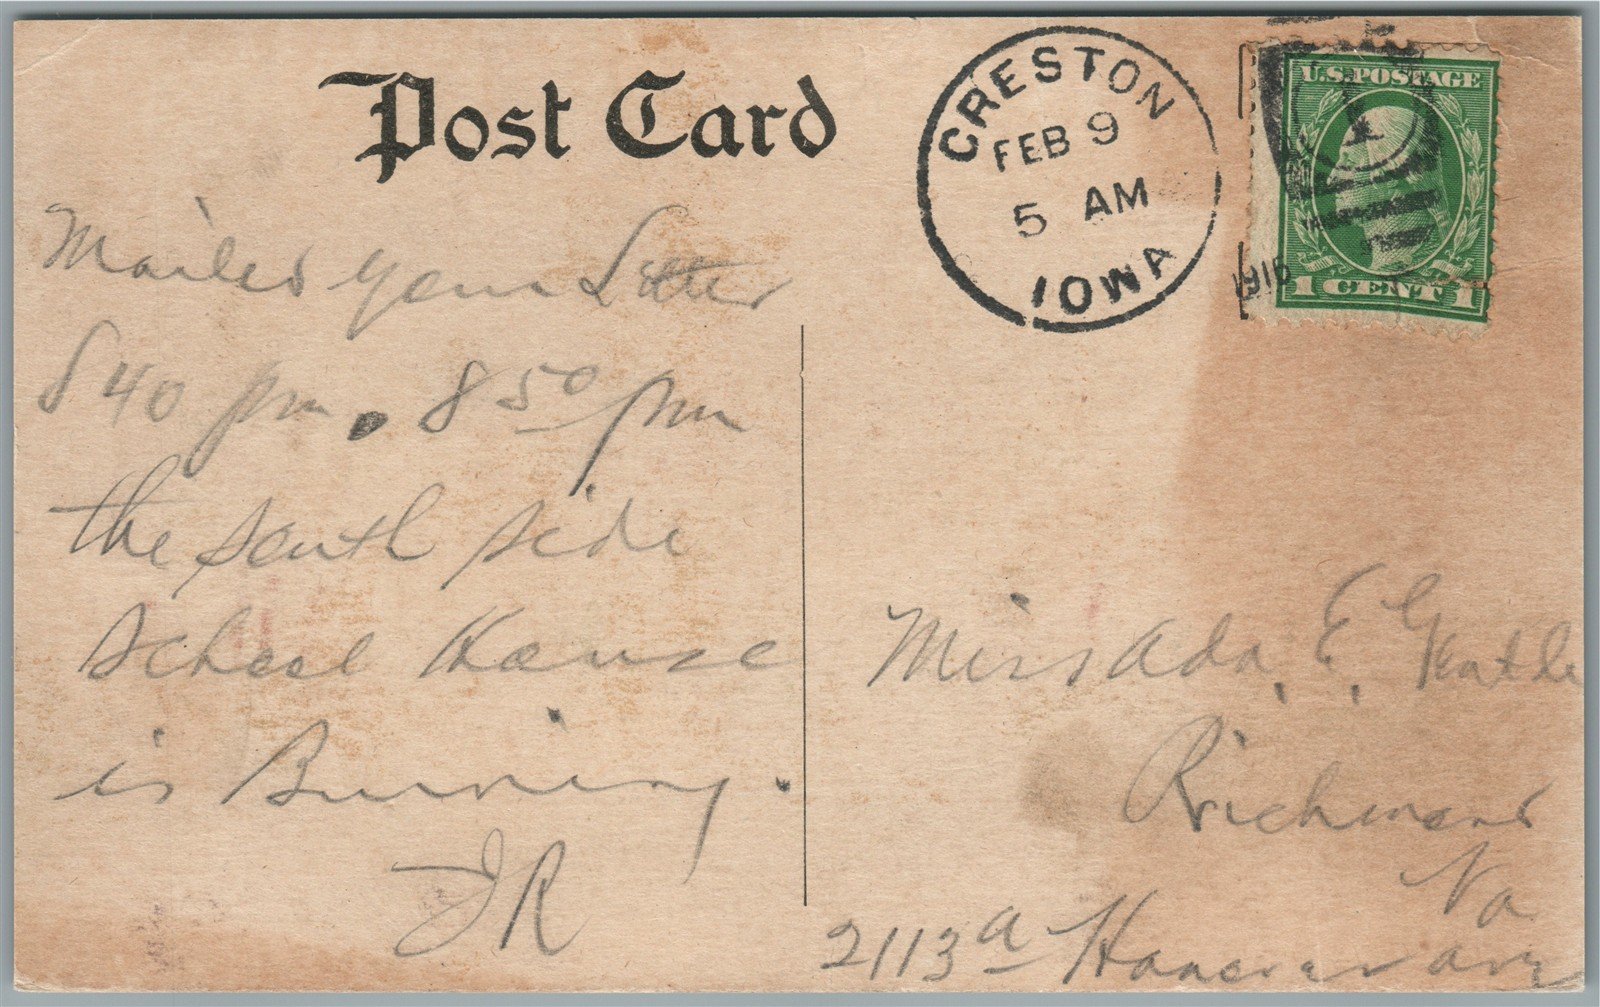 Post Card
CRESTON
FEB 9
5 AM
IOWA
1916
U.S. POSTAGE
1 CENT 1
Mailed your Letter
8 40 pm. 8 50 pm
the south side
School House
is Burning.
JR
Miss Ada. E.
Richmond
Va
2113 a Hanover ave